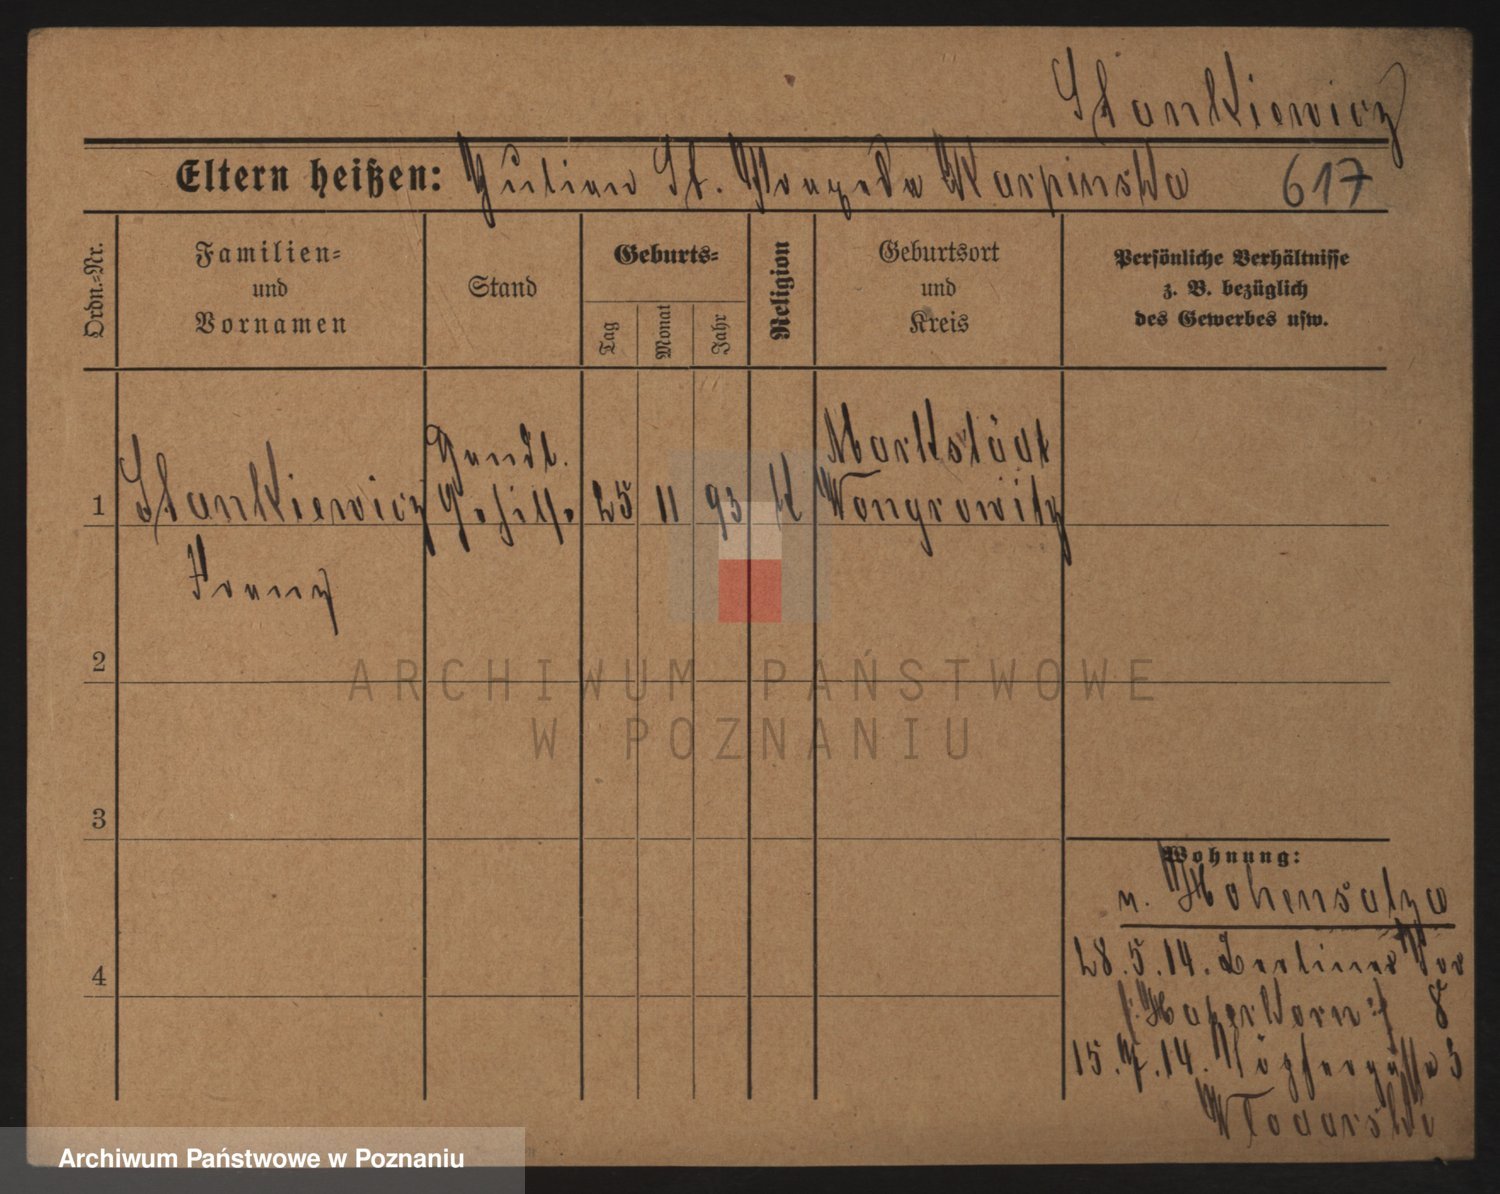 Stankiewicz
Eltern heißen: Julian St. Karpinska 617
Ordn.-Nr.
Familien-
und
Vornamen
Stand
Geburts-
Tag
Monat
Jahr
Religion
Geburtsort
und
Kreis
Persönliche Verhältnisse
z. B. bezüglich
des Gewerbes usw.
Handl. Markstädt
1 Stankiewicz Gehilfe 25 11 93 k Wongrowitz
Franz
2
ARCHIWUM PAŃSTWOWE
W POZNANIU
3
Wohnung:
n. Hohensalza
4
28.5.14. Berliner Tor
/: Haberkorn :/ 8
15.7.14. Töpfergasse 3
Wlodarski
Archiwum Państwowe w Poznaniu